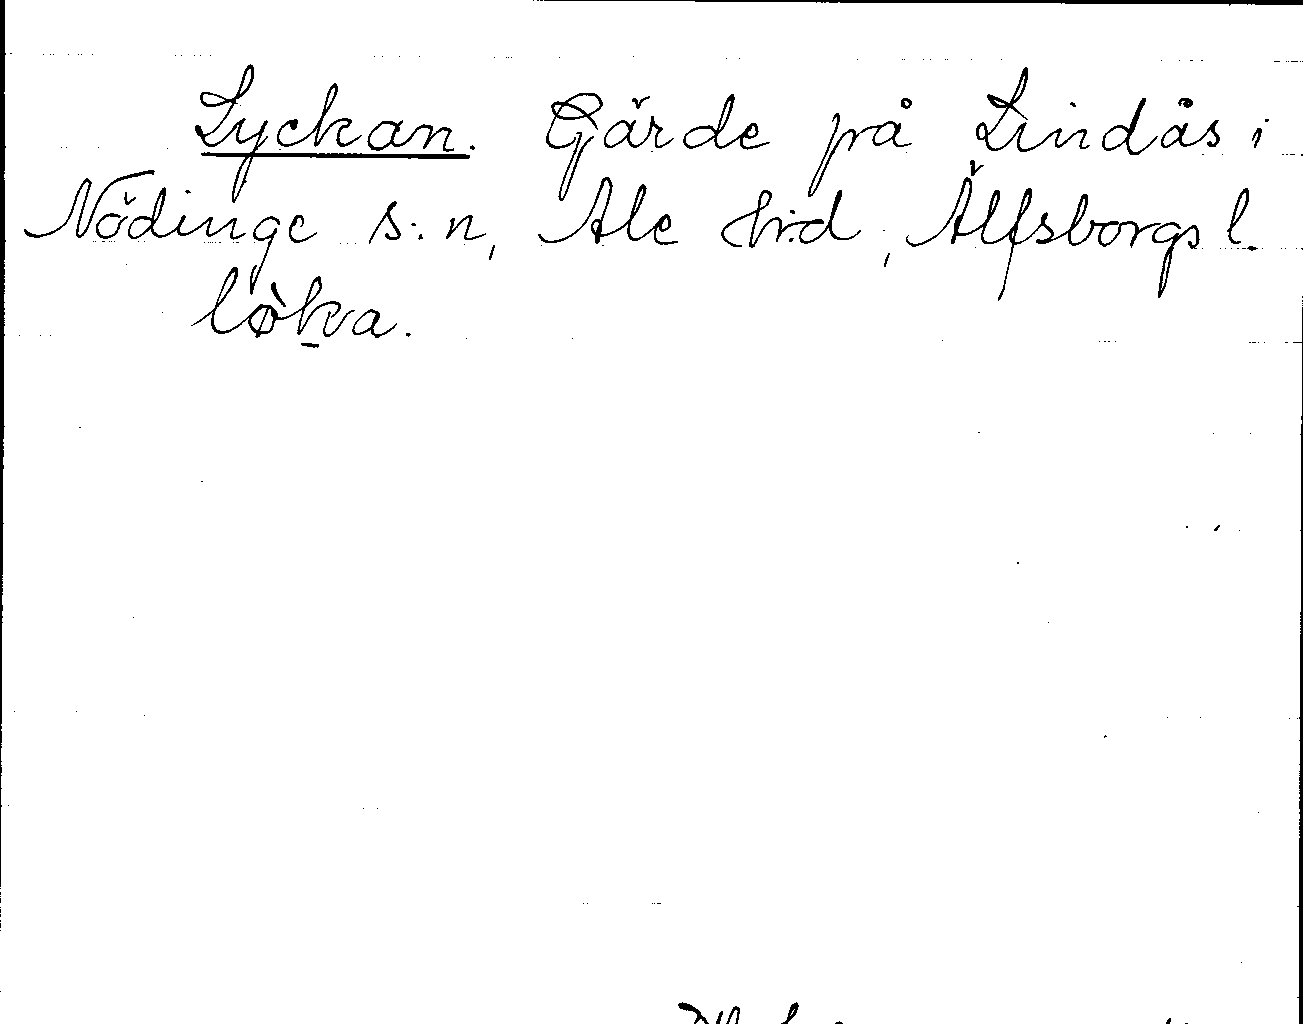 Lyckan. Gärde på Lindås i
Nödinge s:n, Ale h:d, Älfsborgs l.
lø̀ka.